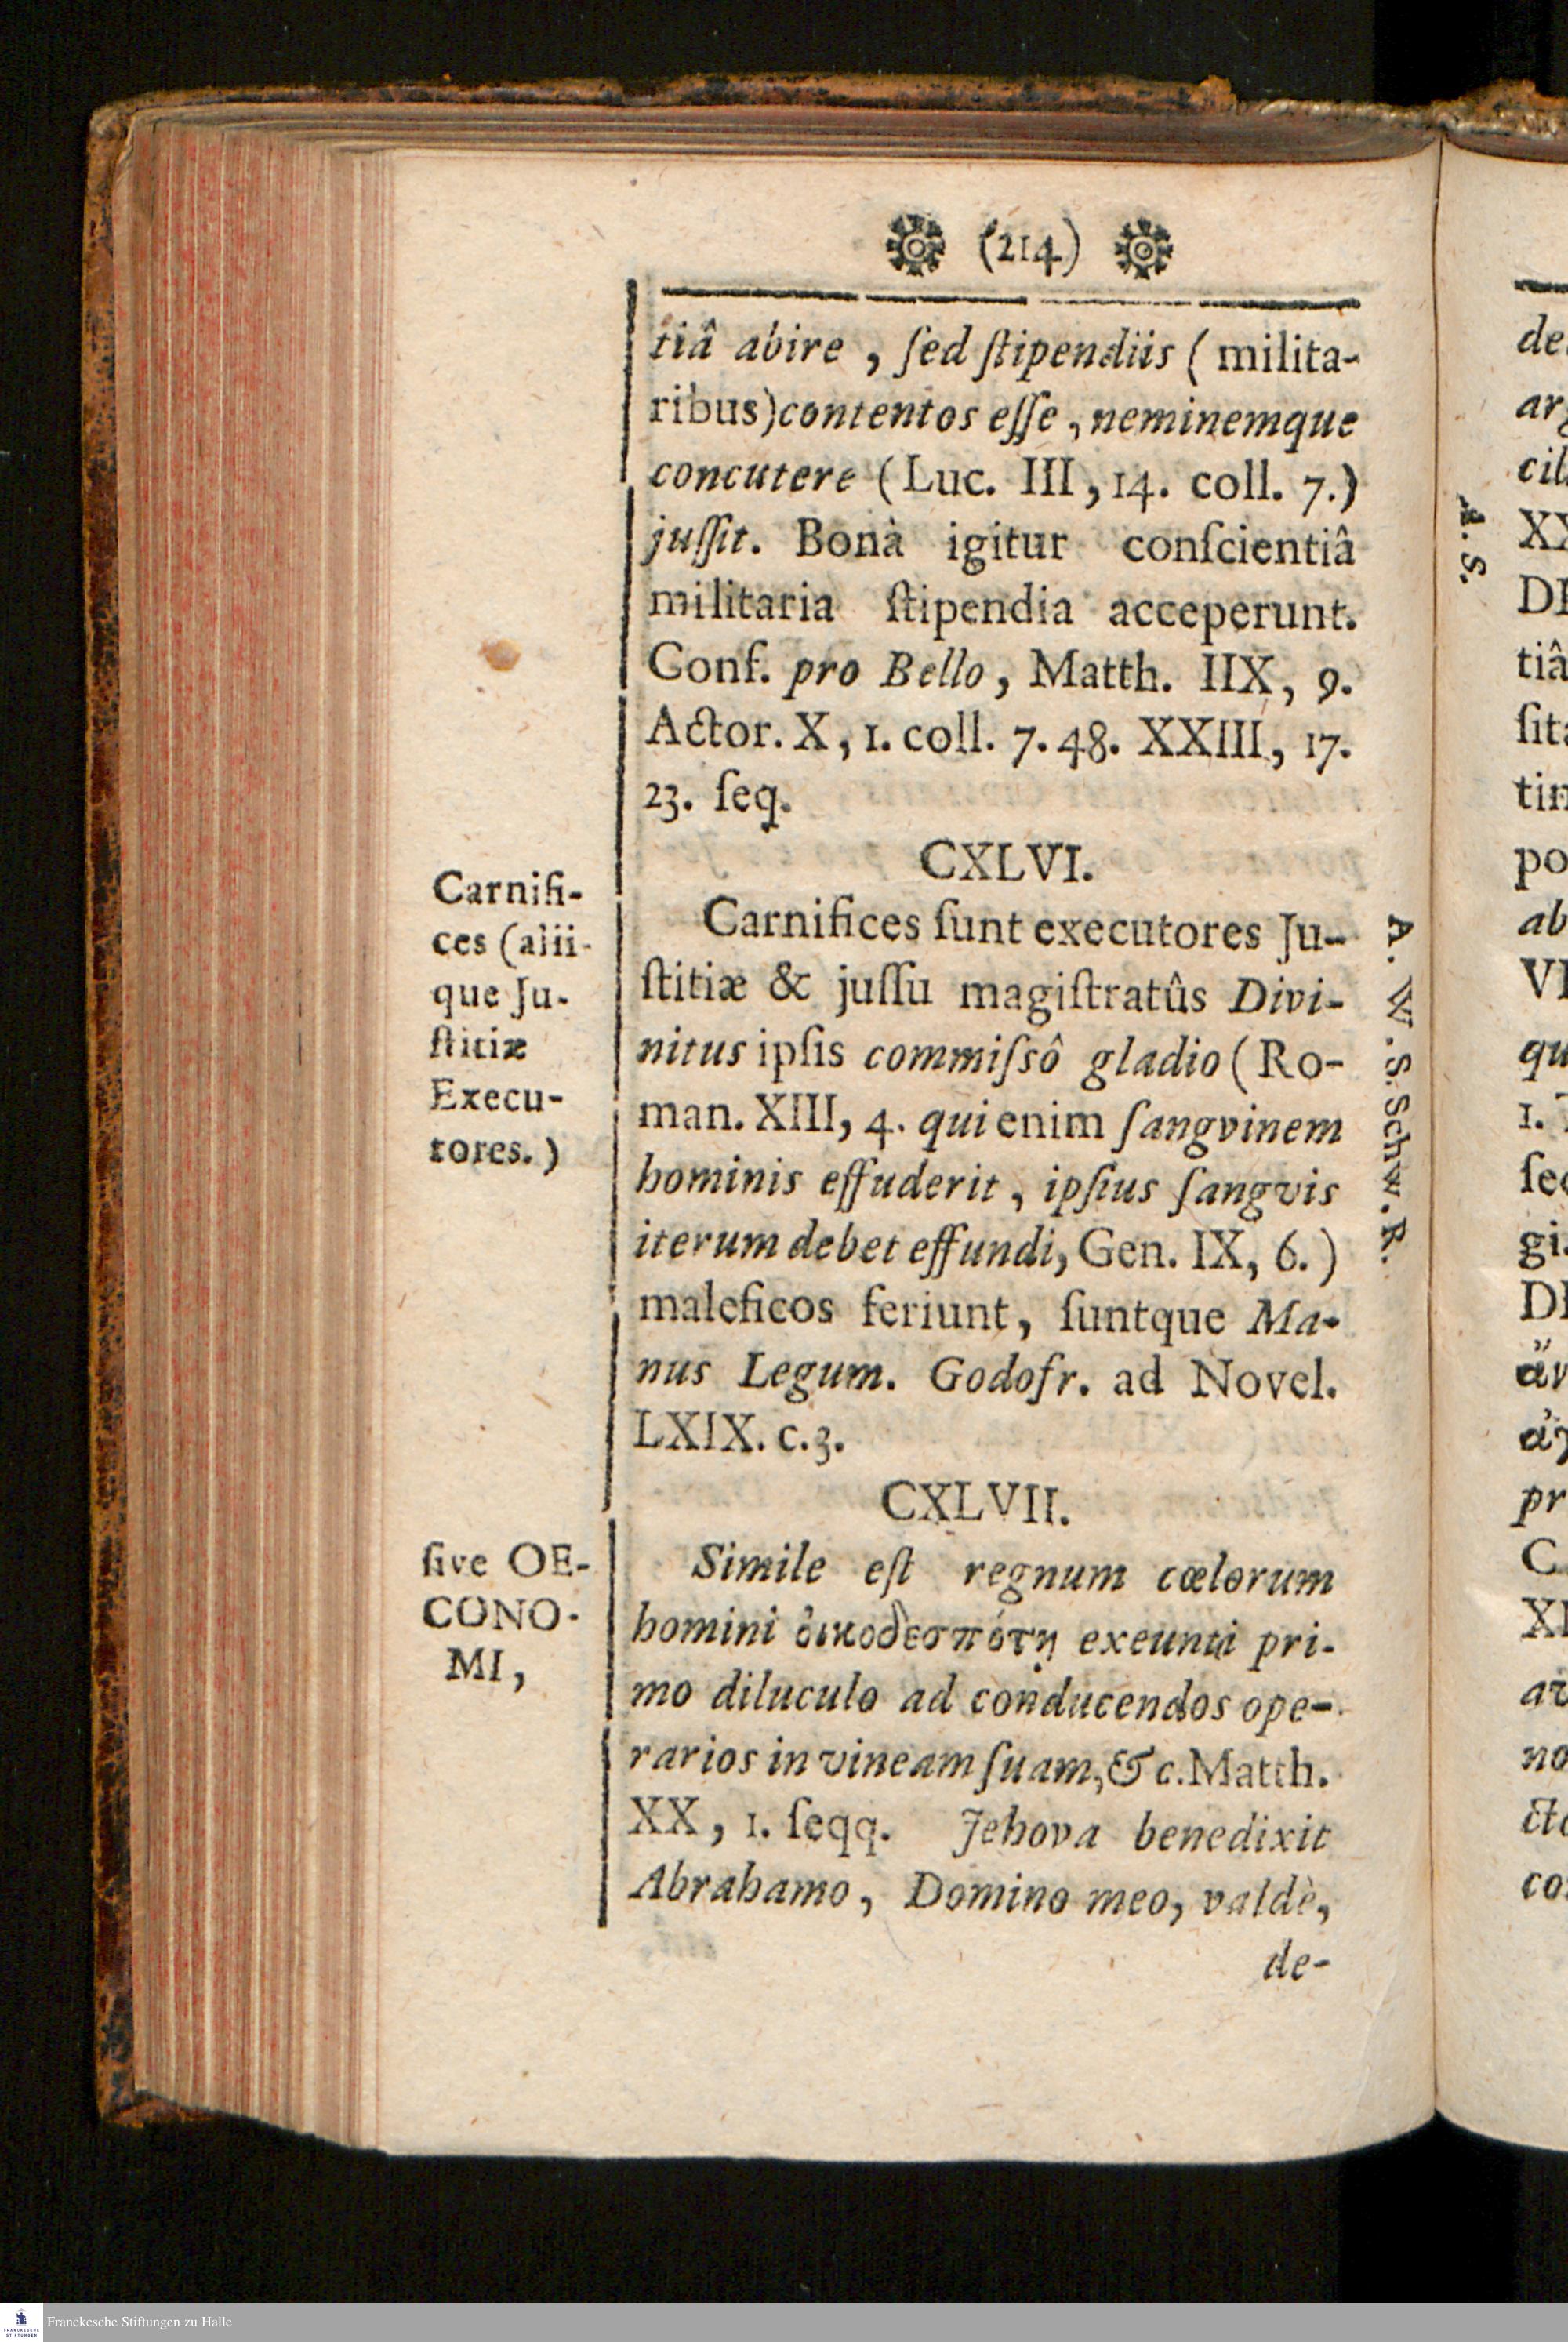 (214)
tiâ abire, ſed ſtipendiis (milita-
ribus) contentos eſſe, neminemque
concutere (Luc. III, 14. coll. 7.)
juſſit. Bonâ igitur conſcientiâ
militaria ſtipendia acceperunt.
Conf. pro Bello, Matth. IIX, 9.
Actor. X, 1. coll. 7. 48. XXIII, 17.
23. ſeq.
CXLVI.
Carnifi-
ces (alii-
que Ju-
ſtitiæ
Execu-
tores.)
Carnifices ſunt executores Ju-
ſtitiæ & juſſu magiſtratûs Divi-
nitus ipſis commiſsô gladio (Ro-
man. XIII, 4. qui enim ſangvinem
hominis effuderit, ipſius ſangvis
iterum debet effundi, Gen. IX, 6.)
maleficos feriunt, ſuntque Ma-
nus Legum. Godofr. ad Novel.
LXIX. c. 3.
A. W. S. Schw. R.
CXLVII.
ſive OE-
CONO-
MI,
Simile eſt regnum cœlorum
homini ὀικοδεσπότῃ exeunti pri-
mo diluculo ad conducendos ope-
rarios in vineam ſuam, &c. Matth.
XX, 1. ſeqq. Jehova benedixit
Abrahamo, Domino meo, valdè,
de-
A. S.
de
ar
cil
XX
DE
tiâ
ſit
tin
po
ab
VI
qu
1.
ſe
gi
DE
pr
C
XI
no
co
Franckesche Stiftungen zu Halle